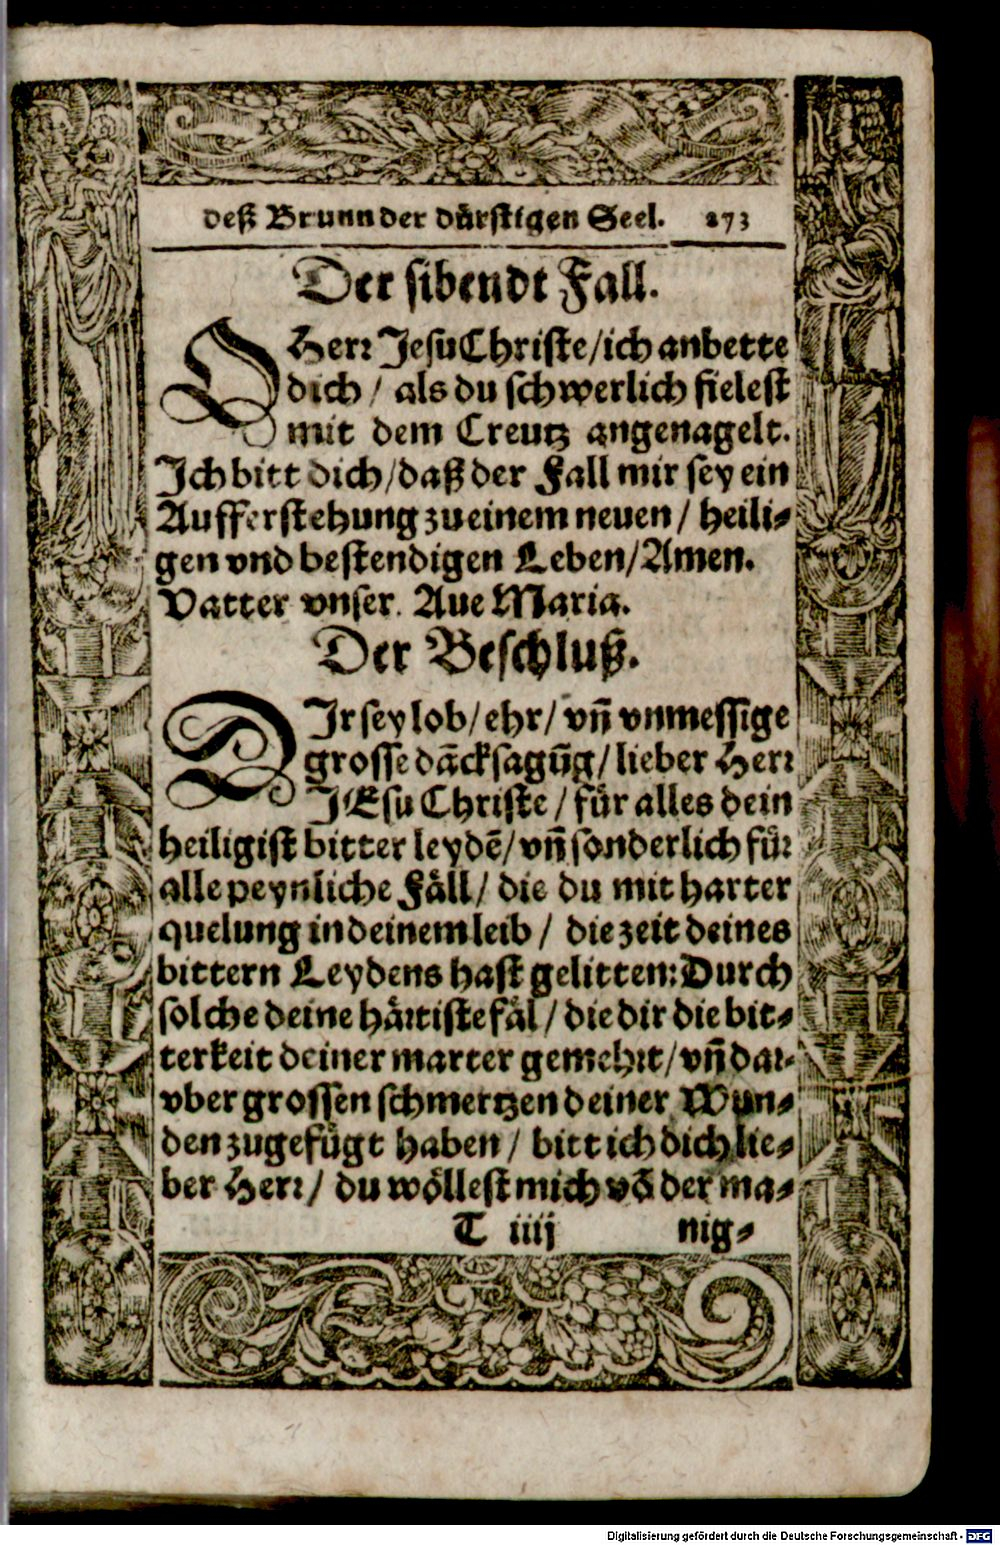 deß Brunn der dürstigen Seel. 273
Der sibendt Fall.
O Herr Jesu Christe/ ich anbette
dich / als du schwerlich fielest
mit dem Creutz angenagelt.
Ich bitt dich/ daß der Fall mir sey ein
Aufferstehung zu einem neuen / heili-
gen vnd bestendigen Leben/ Amen.
Vatter vnser. Aue Maria.
Der Beschluß.
DIr sey lob/ ehr/ vñ vnmessige
grosse dācksagūg/ lieber Herr
JEsu Christe / für alles dein
heiligist bitter leydē/ vñ sonderlich für
alle peynliche Fäll/ die du mit harter
quelung in deinem leib / die zeit deines
bittern Leydens hast gelitten: Durch
solche deine härtiste fäl / die dir die bit-
terkeit deiner marter gemehrt/ vñ dar-
vber grossen schmertzen deiner Wun-
den zugefügt haben / bitt ich dich lie-
ber Herr/ du wöllest mich vō der ma-
T iiij nig-
Digitalisierung gefördert durch die Deutsche Forschungsgemeinschaft - DFG